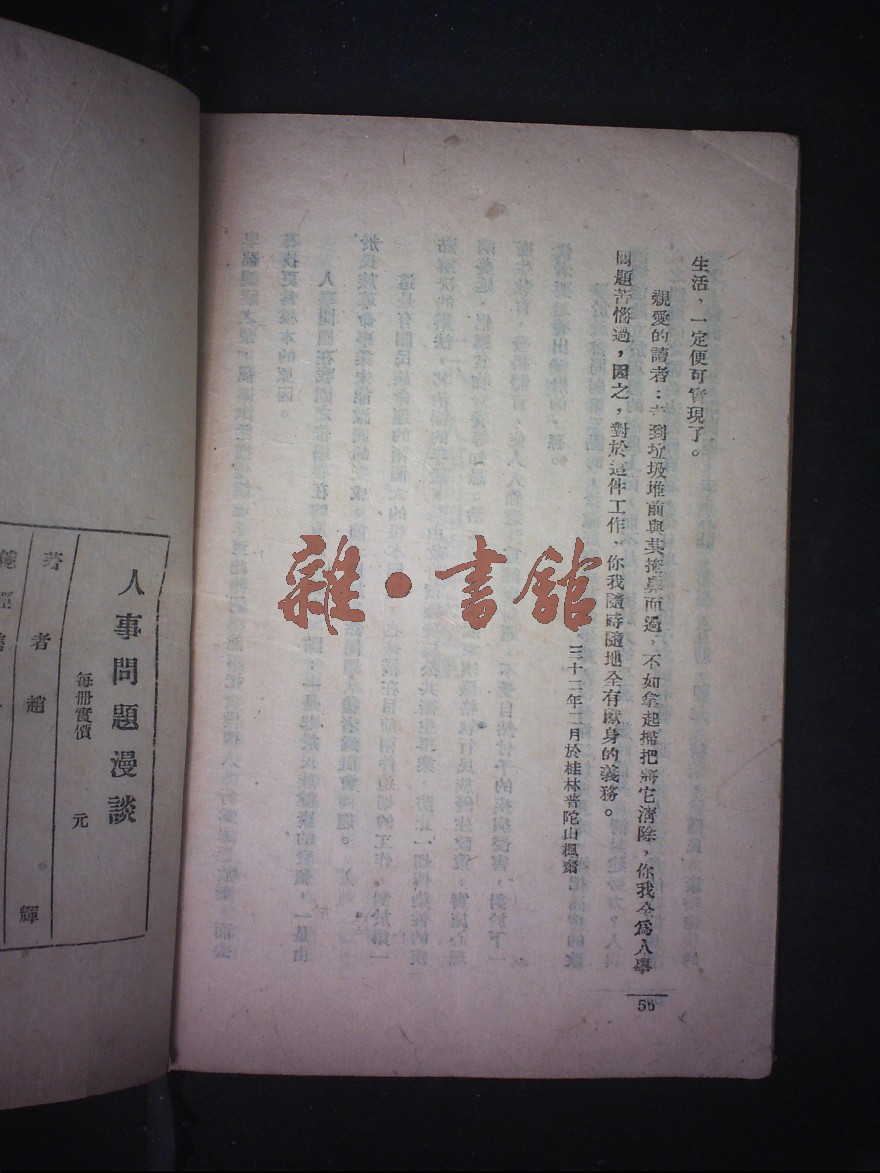 生活、一定便可實現了。
親愛的讀者：到垃圾堆前與其掩鼻而過，不如拿起掃把將它清除，你我全爲人事
問題苦惱過，因之，對於這件工作，你我隨時隨地全有獻身的義務。
三十二年二月於桂林普陀山楓齋
56
雜·書館
人事問題漫談
每冊實價 元
著者趙輝